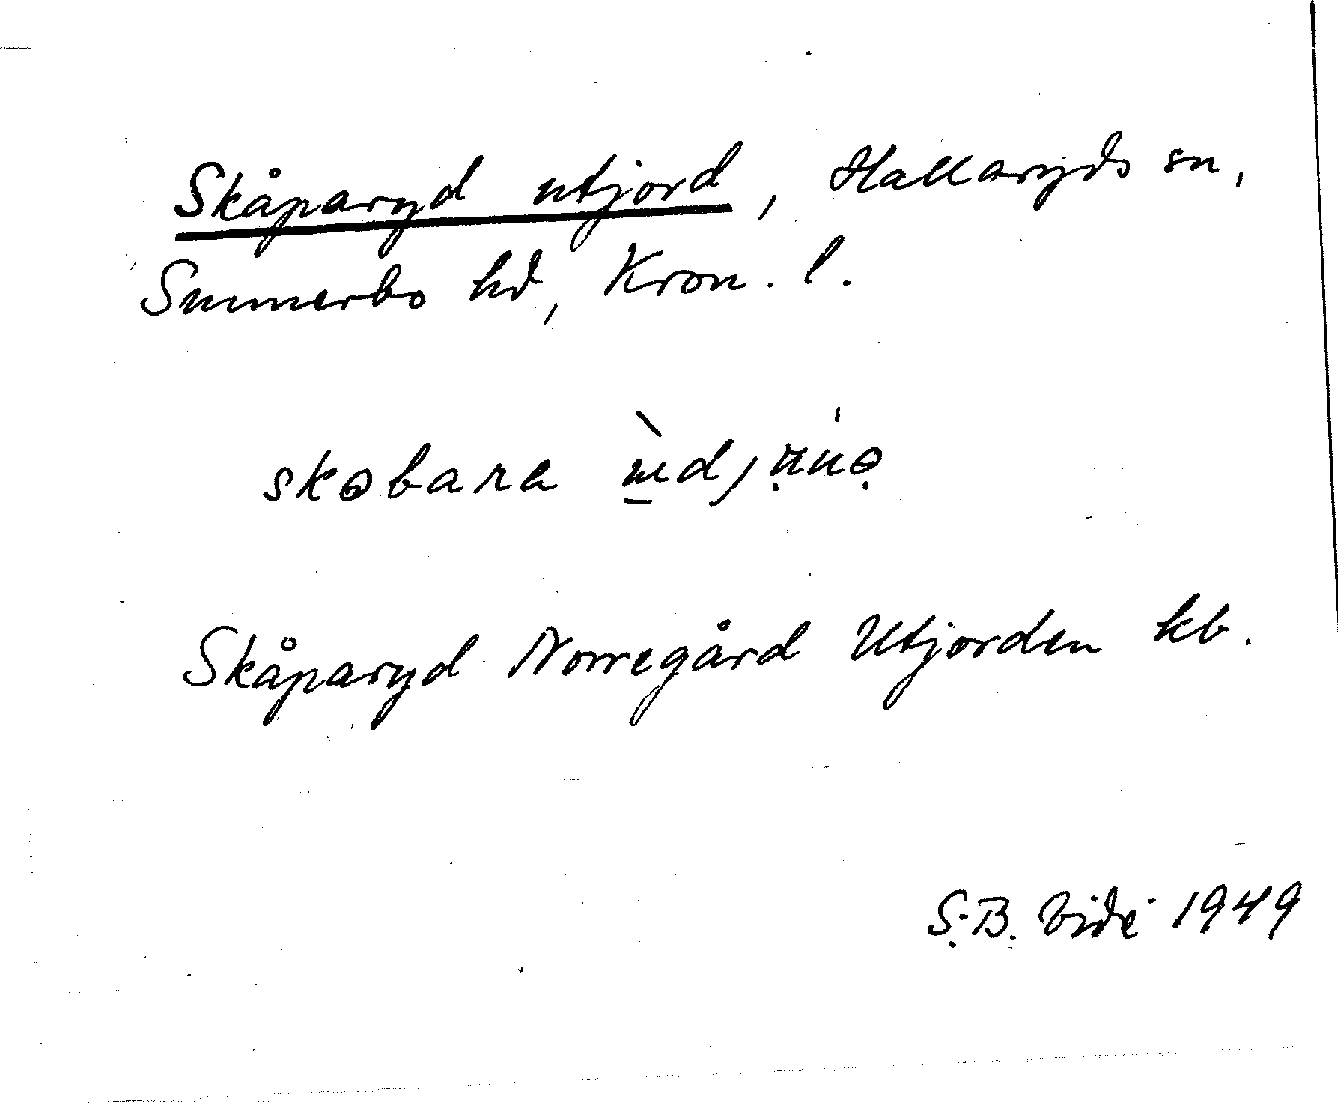 Skåparyd utjord, Hallaryds sn,
Sunnerbo hd, Kron. l.
skobara
Skåparyd Norregård Utjorden kb.
S.-B. Vidé 1949